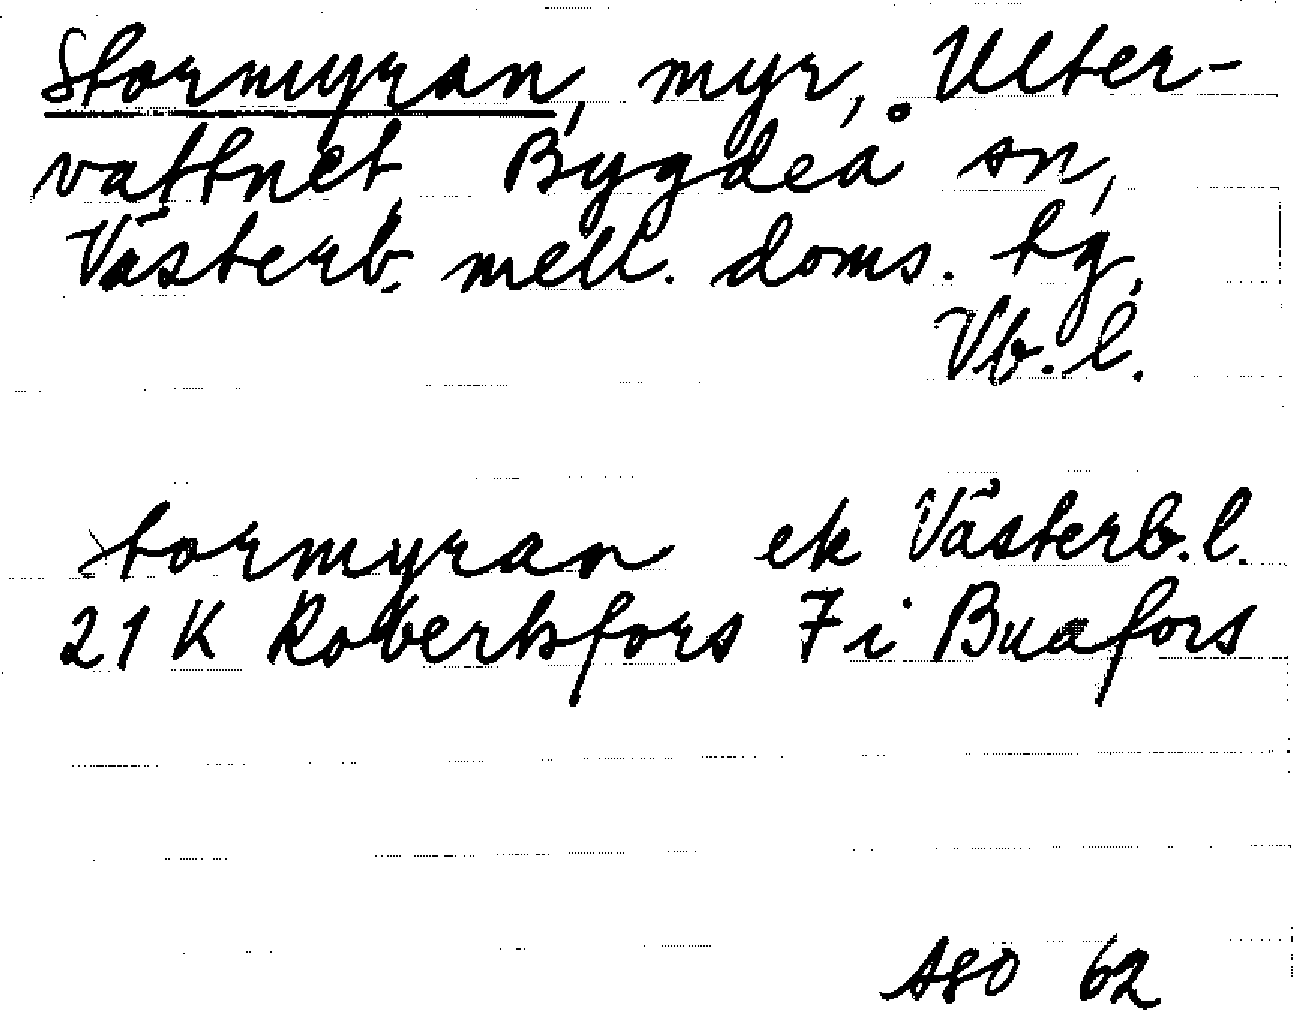 Stormyran, myr, Ulter-
vattnet, Bygdeå sn,
Västerb. mell. doms. tg,
Vb. l.
Stormyran ek Västerb. l.
21 K Robertsfors 7 i Buafors
ASO 62